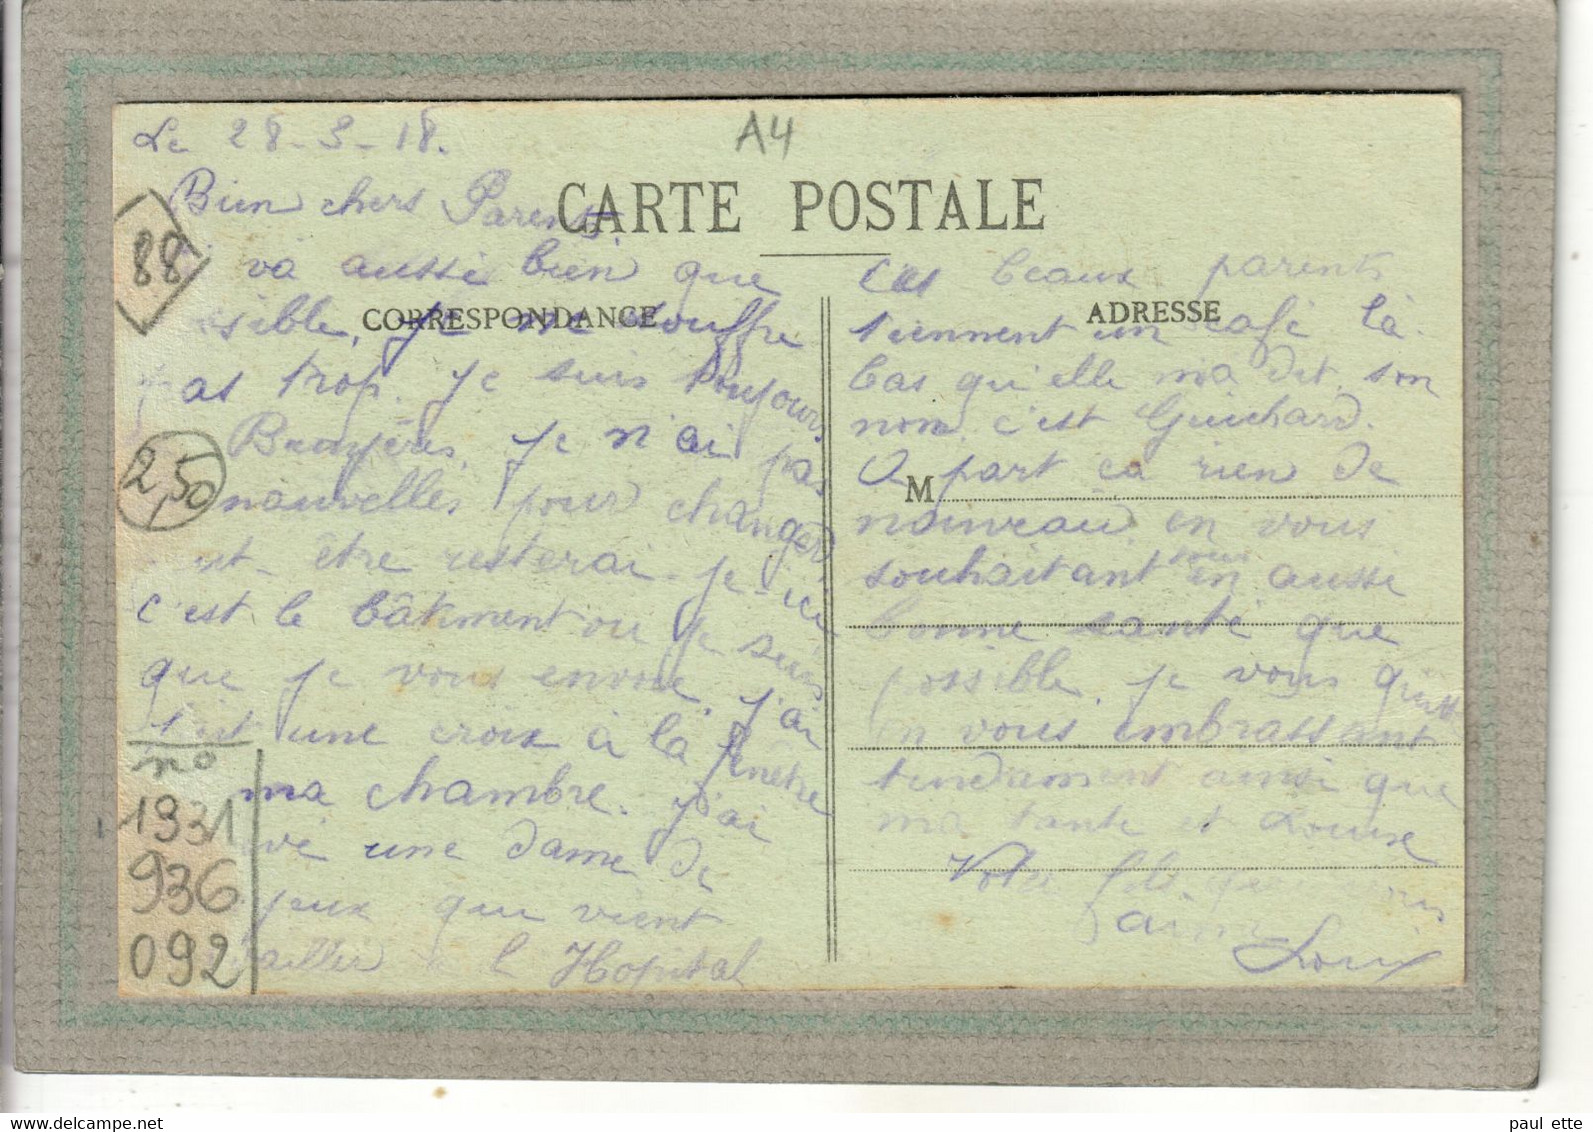 Le 28-3-18.
A4
Bien chers Parents.
CARTE POSTALE
88
va aussi bien que
sible, je ne souffre
CORRESPONDANCE
pas trop. Je suis toujours
Bruyères. Je n'ai pas
2,50
nouvelles pour changer
ut-être resterai-je ici
c'est le bâtiment ou je suis
que je vous envoie, j'ai
une croix à la fenêtre
ma chambre. j'ai
vé une dame de
yeux qui vient
ailler à l'Hopital
no
1931
936
092
beaux parents
ADRESSE
tiennent un café là-
bas qu'elle m'a dit son
nom c'est Guichard.
A part ça rien de
M
nouveau en vous
souhaitant tous en aussi
bonne santé que
possible. je vous quitte
en vous embrassant
tendrement ainsi que
ma tante et Louise
Votre fils qui vous
aime
Louis
paul ette